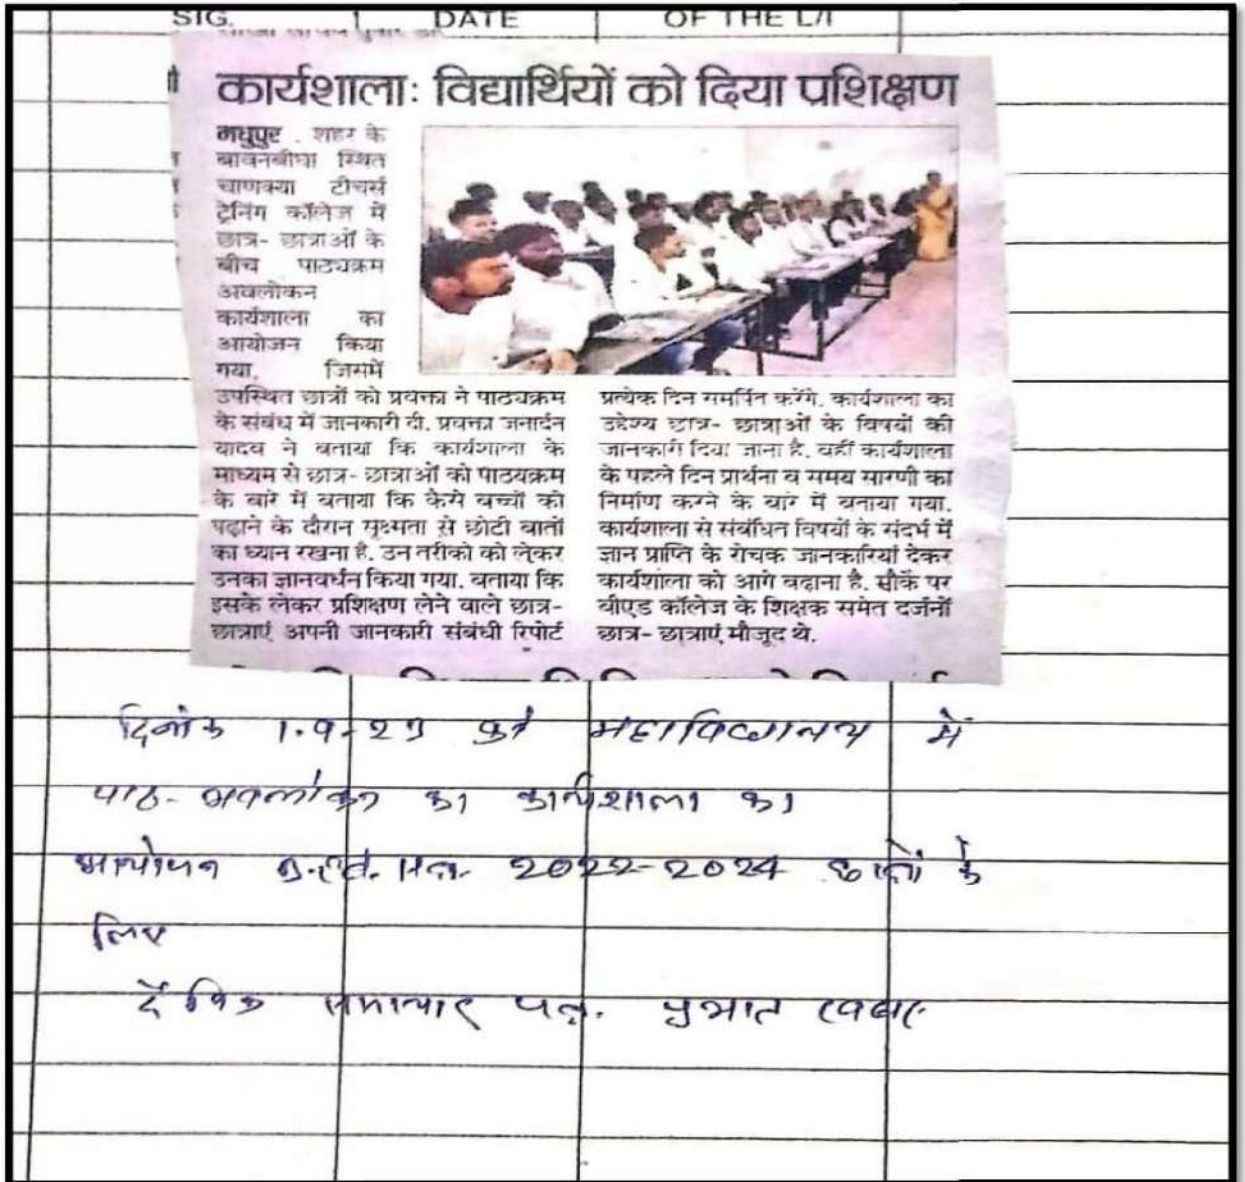 SIG.
DATE
OF THE L/I
कार्यशालाः विद्यार्थियों को दिया प्रशिक्षण
मधुपुर . शहर के
बावनबीघा स्थित
चाणक्या टीचर्स
ट्रेनिंग कॉलेज में
छात्र- छात्राओं के
बीच पाठ्यक्रम
अवलोकन
कार्यशाला का
आयोजन किया
गया, जिसमें
उपस्थित छात्रों को प्रवक्ता ने पाठ्यक्रम
के संबंध में जानकारी दी. प्रवक्ता जनार्दन
यादव ने बताया कि कार्यशाला के
माध्यम से छात्र- छात्राओं को पाठ्यक्रम
के बारे में बताया कि कैसे बच्चों को
पढ़ाने के दौरान सूक्ष्मता से छोटी बातों
का ध्यान रखना है. उन तरीको को लेकर
उनका ज्ञानवर्धन किया गया. बताया कि
इसके लेकर प्रशिक्षण लेने वाले छात्र-
छात्राएं अपनी जानकारी संबंधी रिपोर्ट
प्रत्येक दिन समर्पित करेंगे. कार्यशाला का
उद्देश्य छात्र- छात्राओं के विषयों की
जानकारी दिया जाना है. वहीं कार्यशाला
के पहले दिन प्रार्थना व समय सारणी का
निर्माण करने के बारे में बताया गया.
कार्यशाला से संबंधित विषयों के संदर्भ में
ज्ञान प्राप्ति के रोचक जानकारियां देकर
कार्यशाला को आगे बढ़ाना है. मौके पर
बीएड कॉलेज के शिक्षक समेत दर्जनों
छात्र- छात्राएं मौजूद थे.
दिनांक 1.9.23 को महाविद्यालय में
पाठ- अवलोकन का कार्यशाला का
आयोजन बी.एड. सत्र 2022-2024 छात्रों के
लिए
दैनिक समाचार पत्र. प्रभात खबर